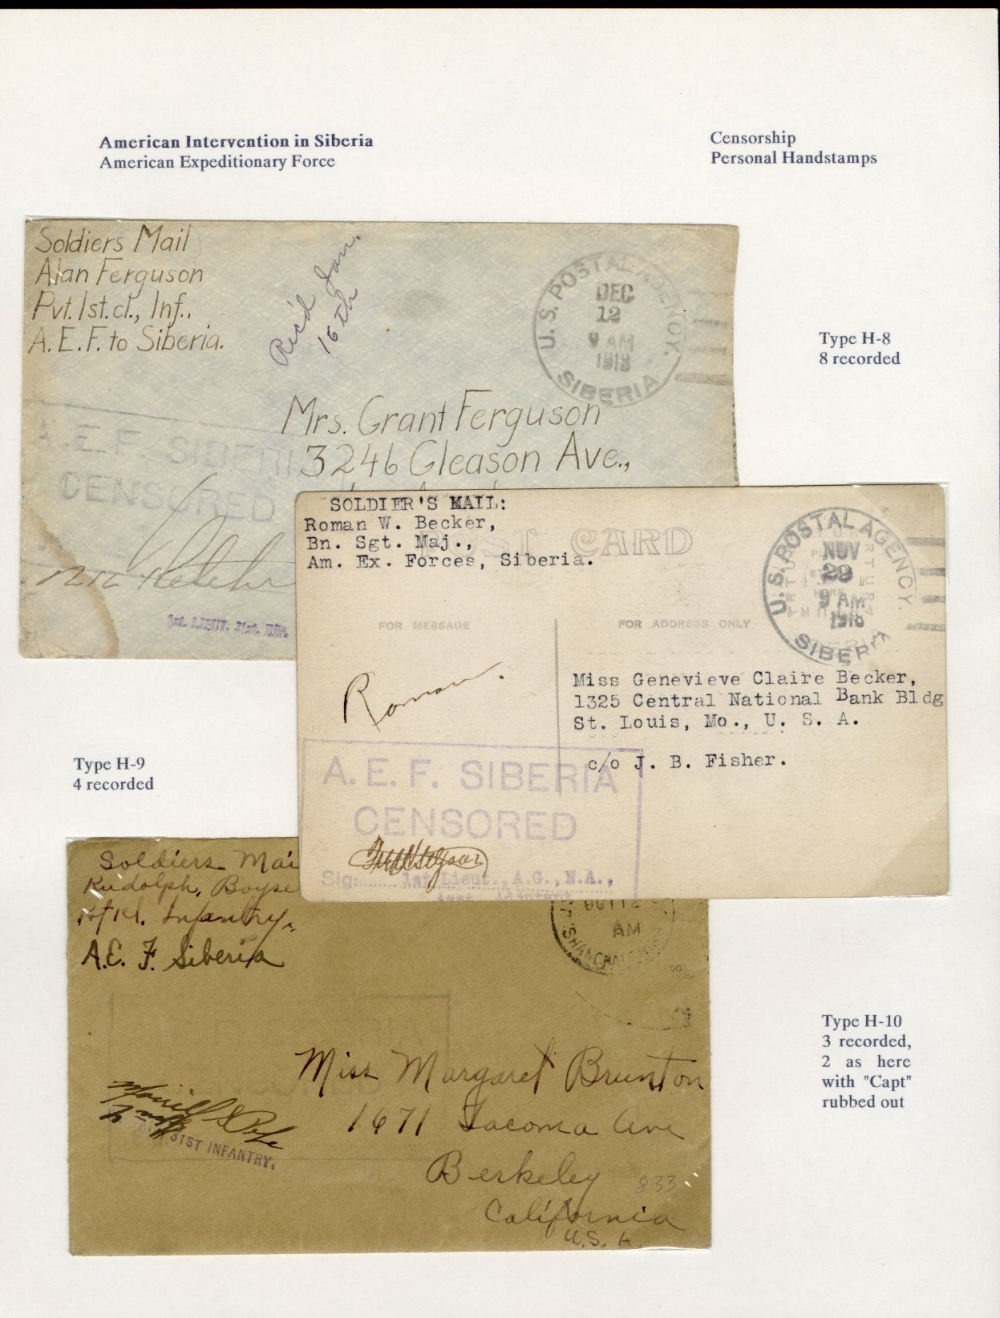 American Intervention in Siberia
American Expeditionary Force
Censorship
Personal Handstamps
Soldiers Mail
Alan Ferguson
Pvt. 1st. cl., Inf.,
A. E. F. to Siberia.
Rec'd Jan.
16th
U. S. POSTAL AGENCY.
DEC
12
9 AM
1918
SIBERIA
Type H-8
8 recorded
Mrs. Grant Ferguson
3246 Gleason Ave.,
A. E. F. SIBERI
CENSORED
1st. LIEUT. 31st. INF.
SOLDIER'S MAIL:
Roman W. Becker,
Bn. Sgt. Maj.,
Am. Ex. Forces, Siberia.
POST CARD
U. S. POSTAL AGENCY.
NOV
29
9 AM
1918
SIBERIA
FOR MESSAGE
FOR ADDRESS ONLY
Roman.
Miss Genevieve Claire Becker,
1325 Central National Bank Bldg
St. Louis, Mo., U. S. A.
c/o J. B. Fisher.
A. E. F. SIBERIA
CENSORED
Sig: 1st Lieut., A.G., N.A.,
Asst. Adjutant
Type H-9
4 recorded
Soldiers Mai
Rudolph, Boyse
Infantry,
A.E. F. Siberia
OCT 12
AM
SHANGHAI
Miss Margaret Brunton
1671 Tacoma Ave
Berkeley
California
U.S. A
833
31ST INFANTRY.
Type H-10
3 recorded,
2 as here
with "Capt"
rubbed out